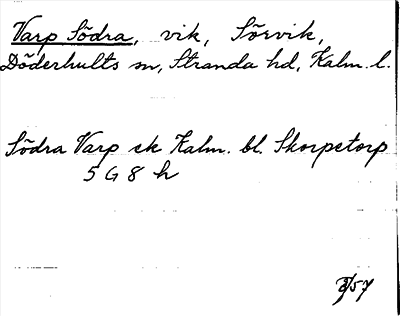 Varp Södra, vik, Sörvik,
Döderhults sn, Stranda hd, Kalm. l.
Södra Varp ek Kalm. bl. Skorpetorp
5 G 8 h